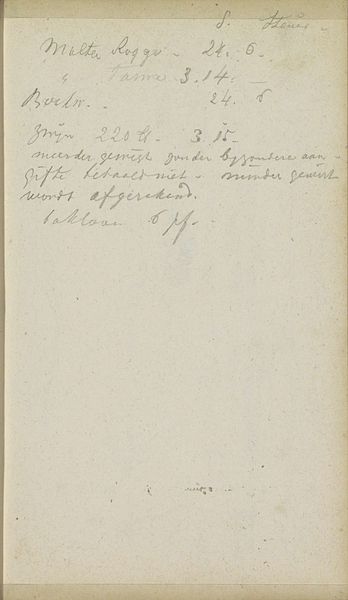 8.
Malter Rogge - 24. 6.
" Tarwe 3.14. —
Boekw. - 24. 6
Zwijn 220 ℔. - 3.15 -
meerder gewigt zonder byzondere aan -
gifte betaald niet - minder gewigt
wordt afgerekend.
6 pf. -